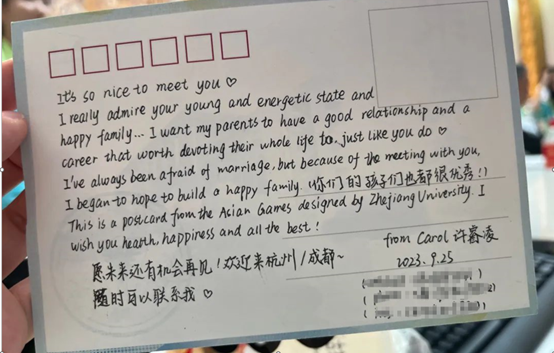 It's so nice to meet you ♡
I really admire your young and energetic state and
happy family... I want my parents to have a good relationship and a
career that worth devoting their whole life to, just like you do ♡
I've always been afraid of marriage, but because of the meeting with you,
I began to hope to build a happy family. (你们的孩子们也都很优秀!)
This is a postcard from the Asian Games designed by Zhejiang University. I
wish you health, happiness and all the best!
愿未来还有机会再见！欢迎来杭州/成都~
随时可以联系我 ♡
from Carol 许睿凌
2023.9.25